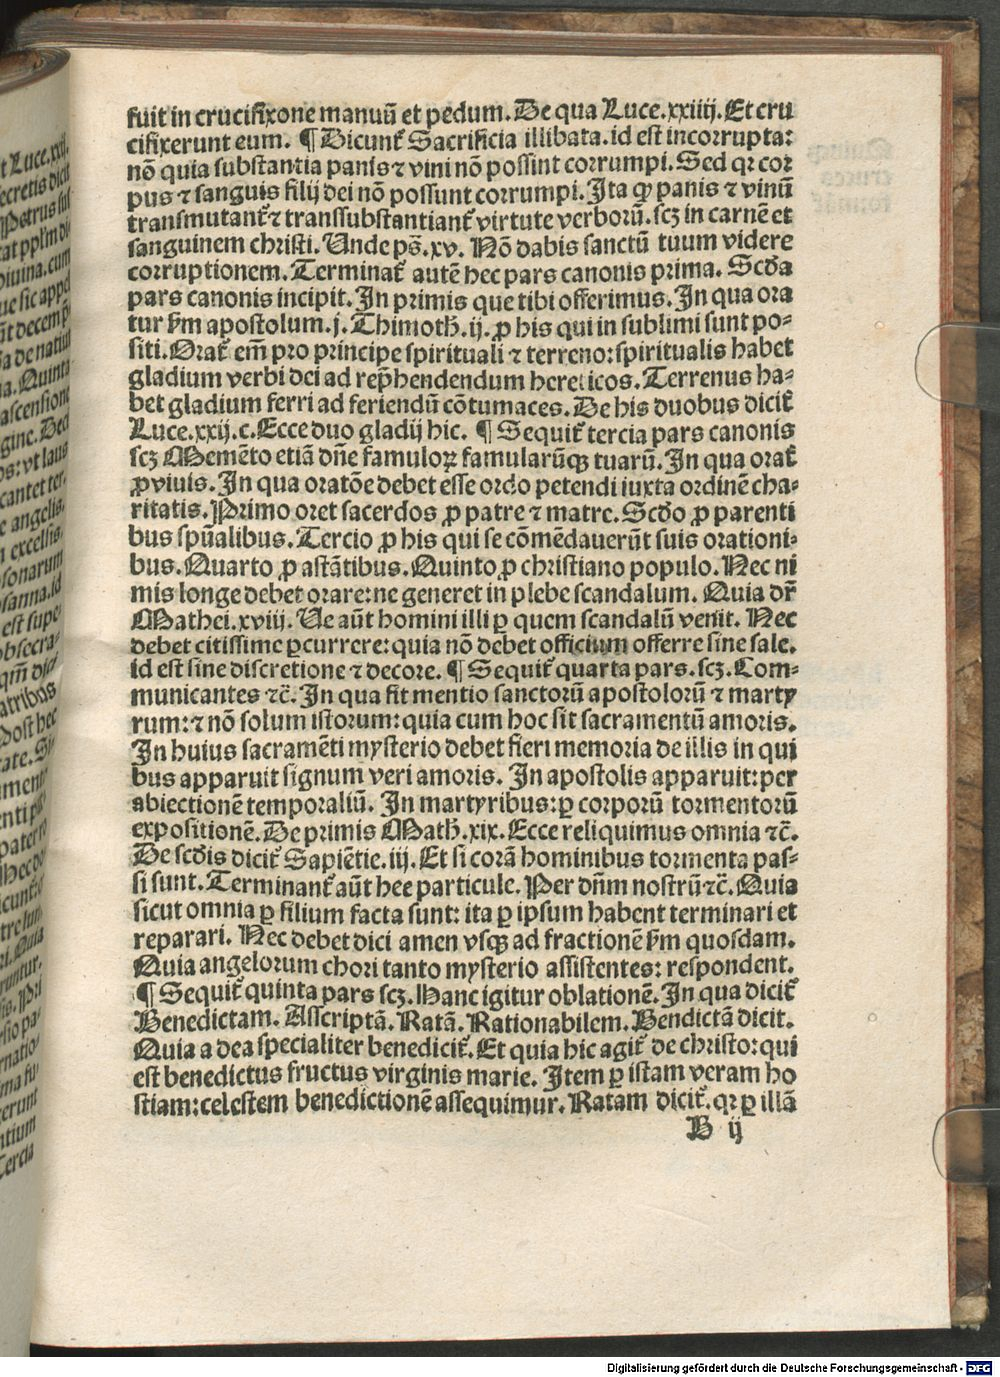 fuit in crucifixone manuū et pedum. De qua Luce. xxiiij. Et cru
cifixerunt eum. ¶ Dicunt᷑ Sacrificia illibata. id est incorrupta:
nō quia substantia panis ⁊ vini nō possint corrumpi. Sed qꝛ cor
pus ⁊ sanguis filij dei nō possunt corrumpi. Ita ꝙ panis ⁊ vinū
transmutant᷑ ⁊ transsubstantiant᷑ virtute verborū. scꝫ in carnē et
sanguinem christi. Unde ps̄. xv. Nō dabis sanctū tuum videre
corruptionem. Terminat᷑ autē hec pars canonis prima. Scd̄a
pars canonis incipit. In primis que tibi offerimus. In qua ora
tur ẜm apostolum. j. Thimoth̄. ij. ꝓ his qui in sublimi sunt po-
siti. Orat᷑ em̄ pro principe spirituali ⁊ terreno: spiritualis habet
gladium verbi dei ad rep̄hendendum hereticos. Terrenus ha-
bet gladium ferri ad feriendū cōtumaces. De his duobus dicit᷑
Luce. xxij. c. Ecce duo gladij hic. ¶ Sequit᷑ tercia pars canonis
scꝫ Memēto etiā dn̄e famuloꝝ famularūqꝫ tuarū. In qua orat᷑
ꝓ viuis. In qua oratōe debet esse ordo petendi iuxta ordinē cha-
ritatis. Primo oret sacerdos ꝓ patre ⁊ matre. Scd̄o ꝓ parenti
bus spūalibus. Tercio ꝓ his qui se cōmēdauerūt suis orationi-
bus. Quarto ꝓ astātibus. Quinto ꝓ christiano populo. Nec ni
mis longe debet orare: ne generet in plebe scandalum. Quia dr̄
Mathei. xviij. Ve aūt homini illi ꝑ quem scandalū venit. Nec
debet citissime ꝑcurrere: quia nō debet officium offerre sine sale.
id est sine discretione ⁊ decore. ¶ Sequit᷑ quarta pars. scꝫ. Com-
municantes ⁊c̄. In qua fit mentio sanctorū apostolorū ⁊ marty
rum: ⁊ nō solum istorum: quia cum hoc sit sacramentū amoris.
In huius sacramēti mysterio debet fieri memoria de illis in qui
bus apparuit signum veri amoris. In apostolis apparuit: per
abiectionē temporaliū. In martyribus: ꝑ corporū tormentorū
expositionē. De primis Math̄. xix. Ecce reliquimus omnia ⁊c̄.
De scd̄is dicit᷑ Sapiētie. iij. Et si corā hominibus tormenta pas-
si sunt. Terminant᷑ aūt hee particule. Per dn̄m nostrū ⁊c̄. Quia
sicut omnia ꝑ filium facta sunt: ita ꝑ ipsum habent terminari et
reparari. Nec debet dici amen vsqꝫ ad fractionē ẜm quosdam.
Quia angelorum chori tanto mysterio assistentes: respondent.
¶ Sequit᷑ quinta pars scꝫ. Hanc igitur oblationē. In qua dicit᷑
Benedictam. Asscriptā. Ratā. Rationabilem. Bendictā dicit.
Quia a dea specialiter benedicit᷑. Et quia hic agit᷑ de christo: qui
est benedictus fructus virginis marie. Item ꝑ istam veram ho
stiam: celestem benedictionē assequimur. Ratam dicit᷑. qꝛ ꝑ illā
B ij
Digitalisierung gefördert durch die Deutsche Forschungsgemeinschaft - DFG